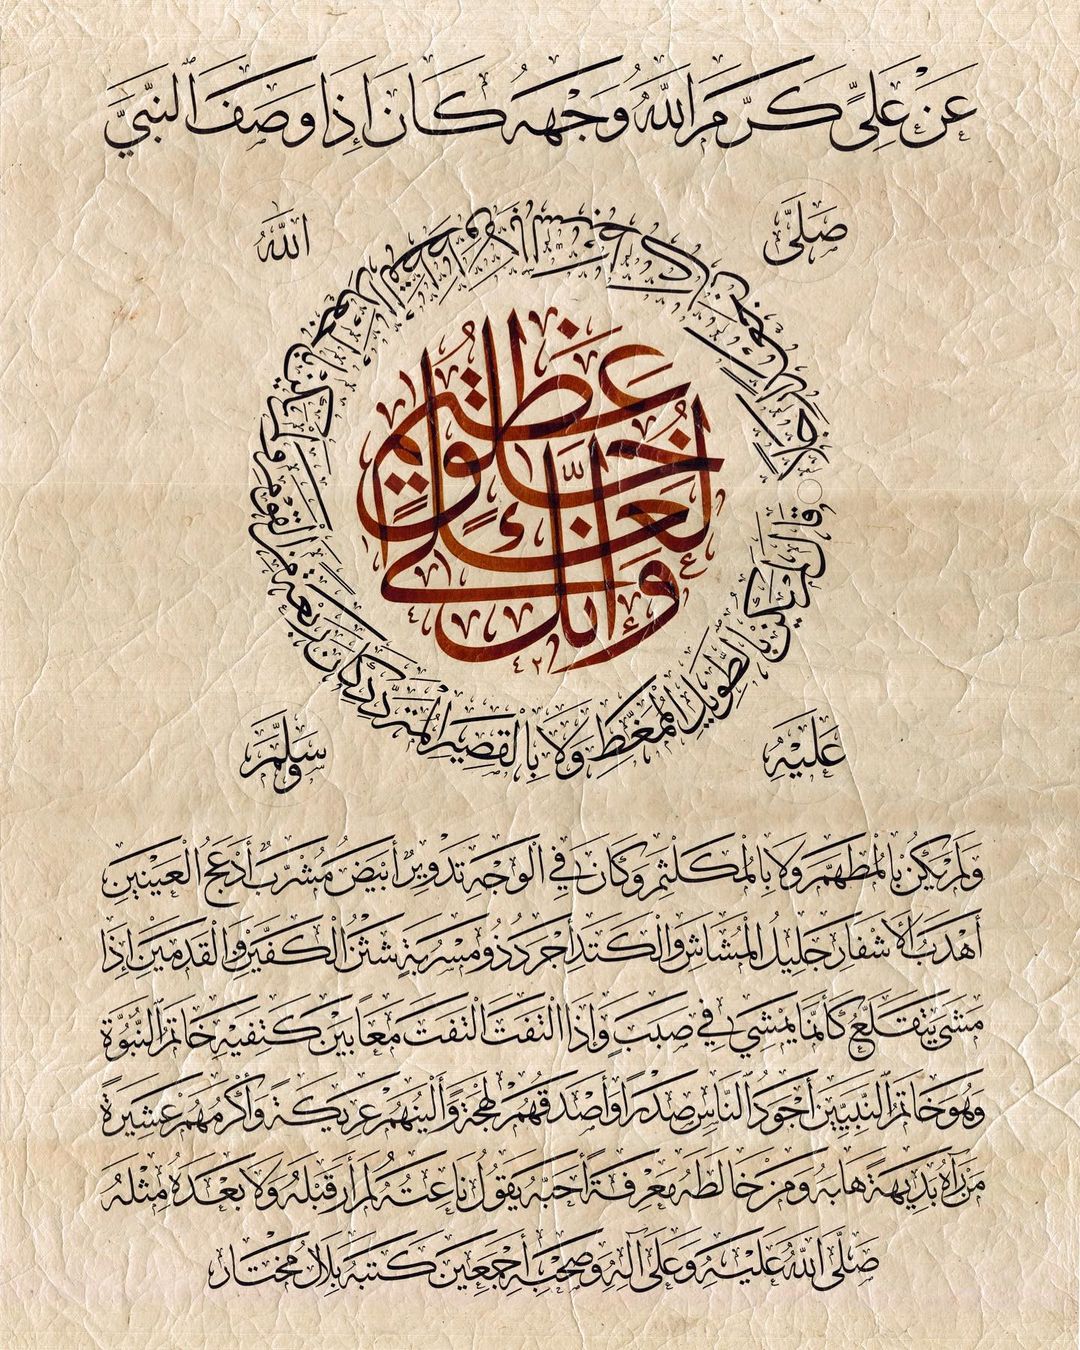 عَنْ عَلِيٍّ كَرَّمَ اللهُ وَجْهَهُ كَانَ اِذَا وَصَفَ النَّبِيَّ
صَلَّى
اللهُ
عَلَيْهِ
وَسَلَّمَ
وَإِنَّكَ لَعَلَى خُلُقٍ عَظِيمٍ
قَالَ لَمْ يَكُنْ بِالطَّوِيلِ الْمُمَغَّطِ وَلَا بِالْقَصِيرِ الْمُتَرَدِّدِ كَانَ رَبْعَةً مِنَ الْقَوْمِ
وَلَمْ يَكُنْ بِالْمُطَهَّمِ وَلَا بِالْمُكَلْثَمِ وَكَانَ فِي الْوَجْهِ تَدْوِيرٌ أَبْيَضُ مُشْرَبٌ أَدْعَجُ الْعَيْنَيْنِ
أَهْدَبُ الْأَشْفَارِ جَلِيلُ الْمُشَاشِ وَالْكَتَدِ أَجْرَدُ ذُو مَسْرُبَةٍ شَثْنُ الْكَفَّيْنِ وَالْقَدَمَيْنِ إِذَا
مَشَى يَتَقَلَّعُ كَأَنَّمَا يَمْشِي فِي صَبَبٍ وَإِذَا الْتَفَتَ الْتَفَتَ مَعًا بَيْنَ كَتِفَيْهِ خَاتَمُ النُّبُوَّةِ
وَهُوَ خَاتَمُ النَّبِيِّينَ أَجْوَدُ النَّاسِ صَدْرًا وَأَصْدَقُهُمْ لَهْجَةً وَأَلْيَنُهُمْ عَرِيكَةً وَأَكْرَمُهُمْ عَشِيرَةً
مَنْ رَآهُ بَدِيهَةً هَابَهُ وَمَنْ خَالَطَهُ مَعْرِفَةً أَحَبَّهُ يَقُولُ نَاعِتُهُ لَمْ أَرَ قَبْلَهُ وَلَا بَعْدَهُ مِثْلَهُ
صَلَّى اللهُ عَلَيْهِ وَعَلَى آلِهِ وَصَحْبِهِ أَجْمَعِينَ كَتَبَهُ بِلَال مُخْتَار